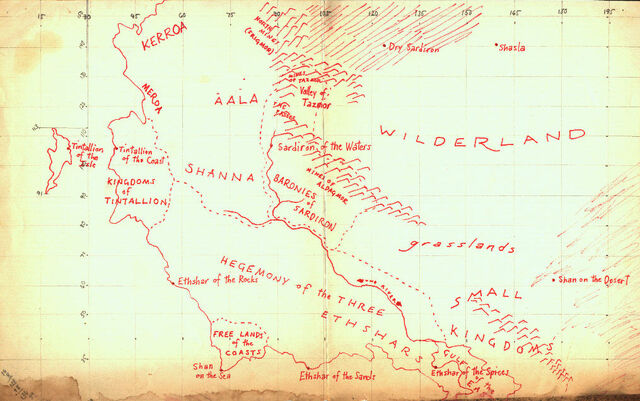 15
30
45
60
75
90
105
120
135
150
165
180
195
KERROA
NORTH
MINES
Dry Sardiron
Shasla
MEROA
AALA
MINES OF TAZMOR
Valley of
Tazmor
THE PASSES
WILDERLAND
Tintallion
of the
Isle
Tintallion
of the Coast
Sardiron of the Waters
SHANNA
KINGDOMS
of
TINTALLION
BARONIES
of
SARDIRON
MINES OF ALDAGMOR
grasslands
HEGEMONY of the THREE
ETHSHARS
Ethshar of the Rocks
Shan on the Desert
SMALL
KINGDOMS
FREE LANDS
of the
COASTS
Shan
on the Sea
Ethshar of the Sands
GULF
of the
EAST
Ethshar of the Spices